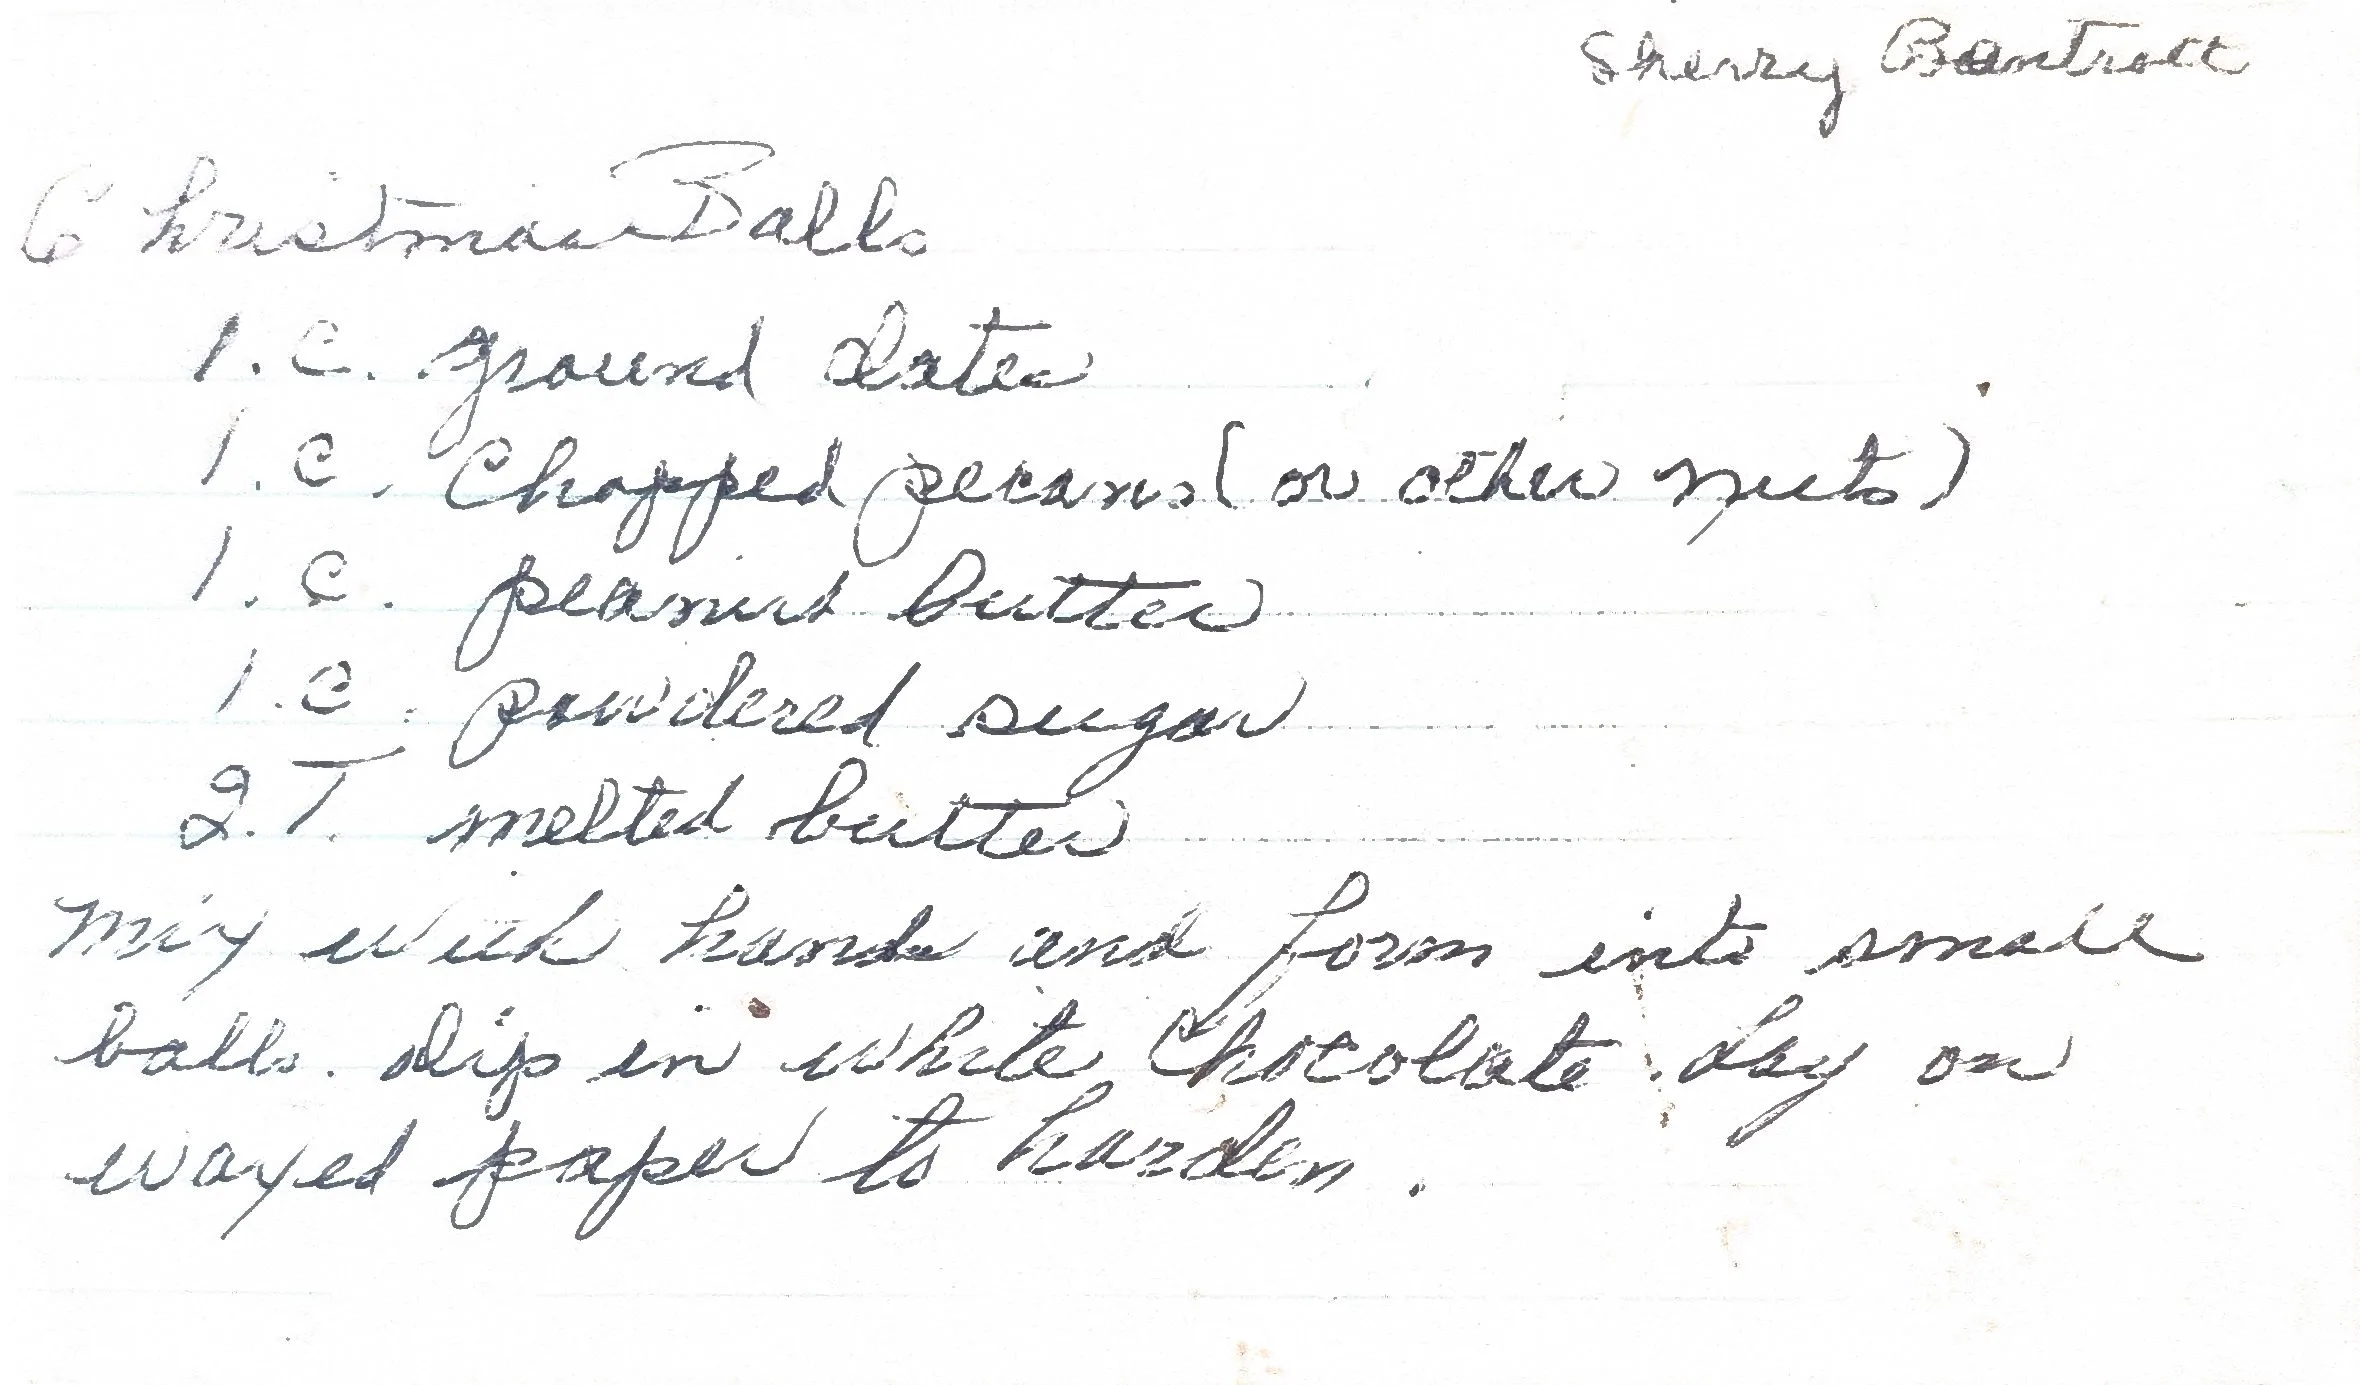 Sherry
Christmas Balls
1. c. ground dates
1. c. Chopped pecans (or other nuts)
1. c. peanut butter
1. c. powdered sugar
2. T. melted butter
Mix with hands and form into small
balls. dip in white Chocolate. Lay on
waxed paper to harden.